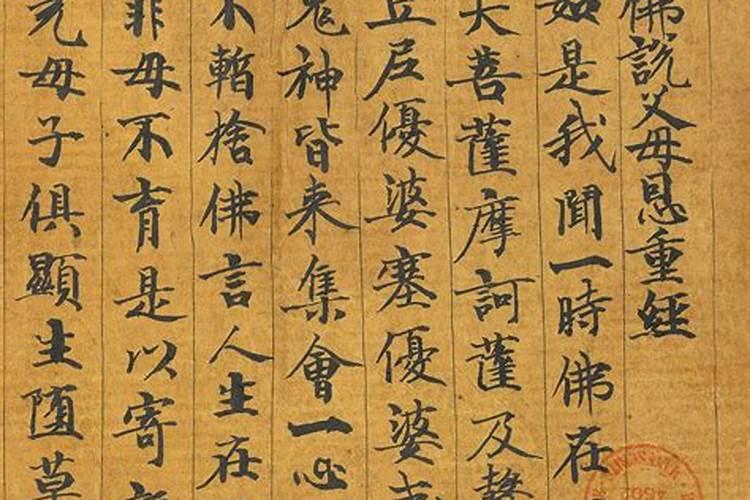 佛說父母恩重經
如是我聞一時佛在
大菩薩摩訶薩及聲
丘尼優婆塞優婆
鬼神皆来集會一心
不暫捨佛言人生在
非母不育是以寄
充母子俱顯生堕草